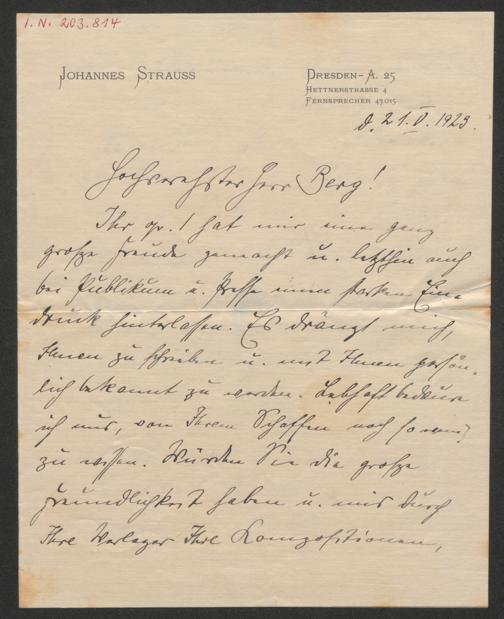 I.N. 203.814
JOHANNES STRAUSS
DRESDEN-A. 25
HETTNERSTRASSE 4
FERNSPRECHER 43015
d. 21. V. 1923.
Hochverehrter Herr Berg!
Ihr op. 1 hat mir eine ganz
große Freude gemacht u. letzthin auch
bei Publikum u. Presse einen starken Ein-
druck hinterlassen. Es drängt mich,
Ihnen zu schreiben u. mit Ihnen persön-
lich bekannt zu werden. Lebhaft bedaure
ich nur, von Ihrem Schaffen noch so wenig
zu wissen. Würden Sie die große
Freundlichkeit haben u. mir durch
Ihre Verleger Ihre Kompositionen,